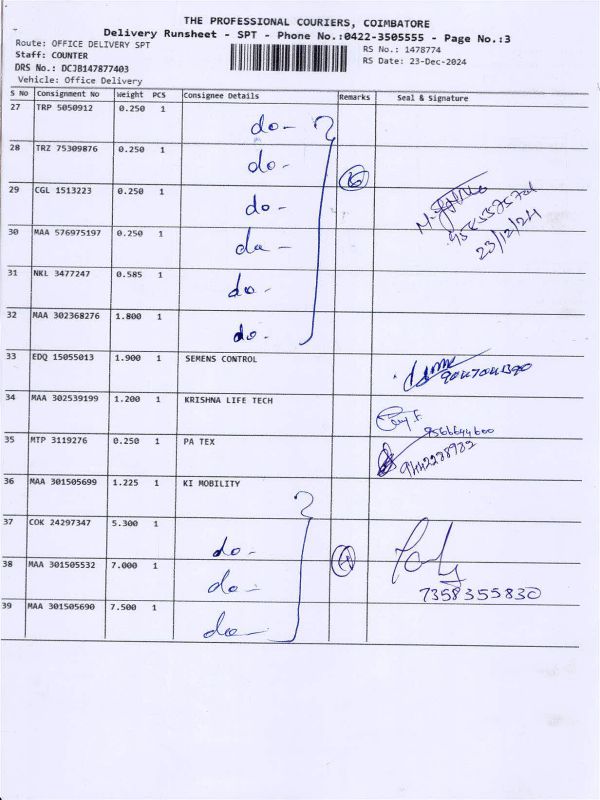 THE PROFESSIONAL COURIERS, COIMBATORE
Delivery Runsheet - SPT - Phone No.:0422-3505555 - Page No.:3
Route: OFFICE DELIVERY SPT
RS No.: 1478774
Staff: COUNTER
RS Date: 23-Dec-2024
DRS No.: DCJB147877403
Vehicle: Office Delivery
S No Consignment No Weight PCS Consignee Details Remarks Seal & Signature
27 TRP 5050912 0.250 1 do-
28 TRZ 75309876 0.250 1 do-
29 CGL 1513223 0.250 1 do-
23/12/24
30 MAA 576975197 0.250 1 do-
31 NKL 3477247 0.585 1 do-
32 MAA 302368276 1.800 1 do-
33 EDQ 15055013 1.900 1 SEMENS CONTROL
34 MAA 302539199 1.200 1 KRISHNA LIFE TECH
9566644600
35 MTP 3119276 0.250 1 PA TEX
9442238932
36 MAA 301505699 1.225 1 KI MOBILITY
37 COK 24297347 5.300 1 do-
38 MAA 301505532 7.000 1 do- 4
7358355830
39 MAA 301505690 7.500 1 do-